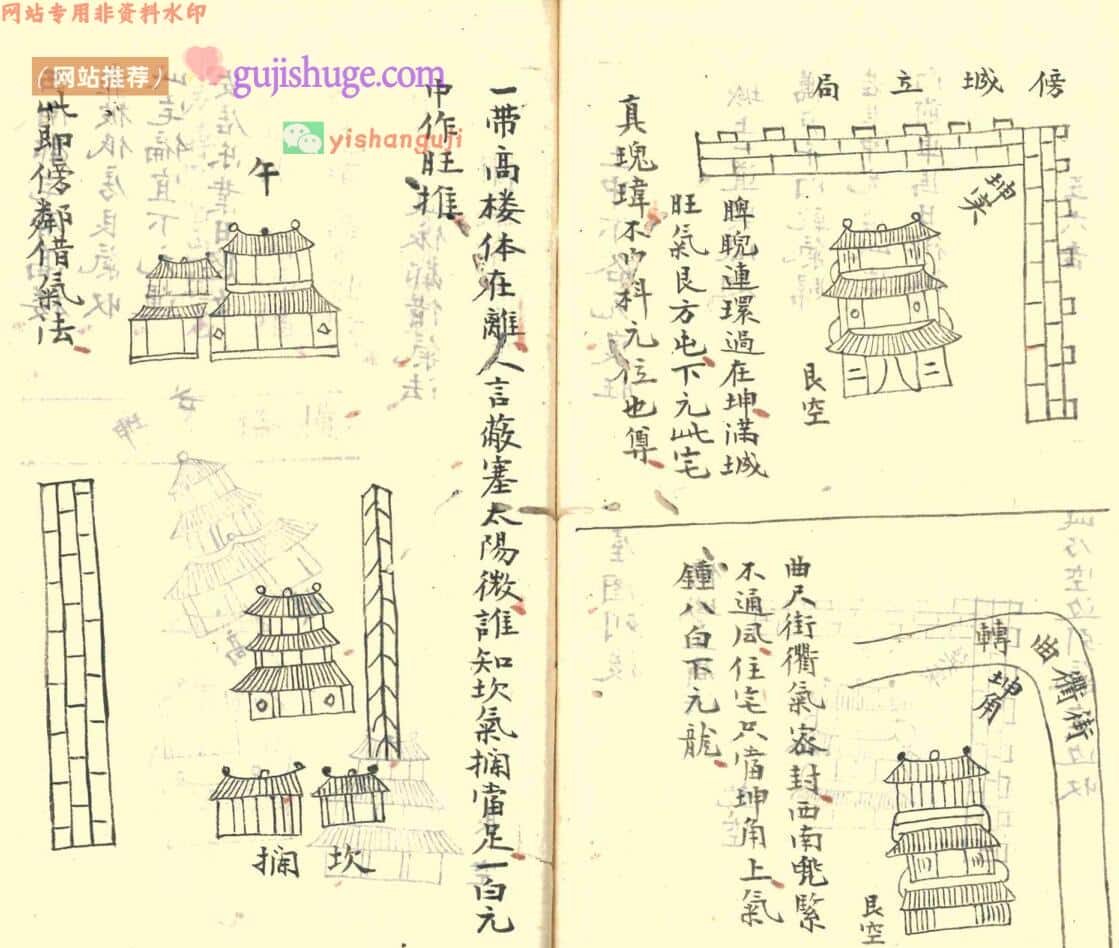 网站专用非资料水印
（网站推荐）
gujishuge.com
yishanguji
傍城立局
坤实
艮空
睥睨連環過在坤滿城
旺氣艮方屯下元此宅
真瑰瑋不
料元位也尊
轉曲衢街
坤角
艮空
曲尺街衢氣密封西南
緊
不通风住宅只當坤角上氣
鍾八白下元龍
一带高楼体在離人言蔽塞太陽微誰知坎氣攔當足一白元
中作旺推
午
坎攔
此即傍鄰借氣法